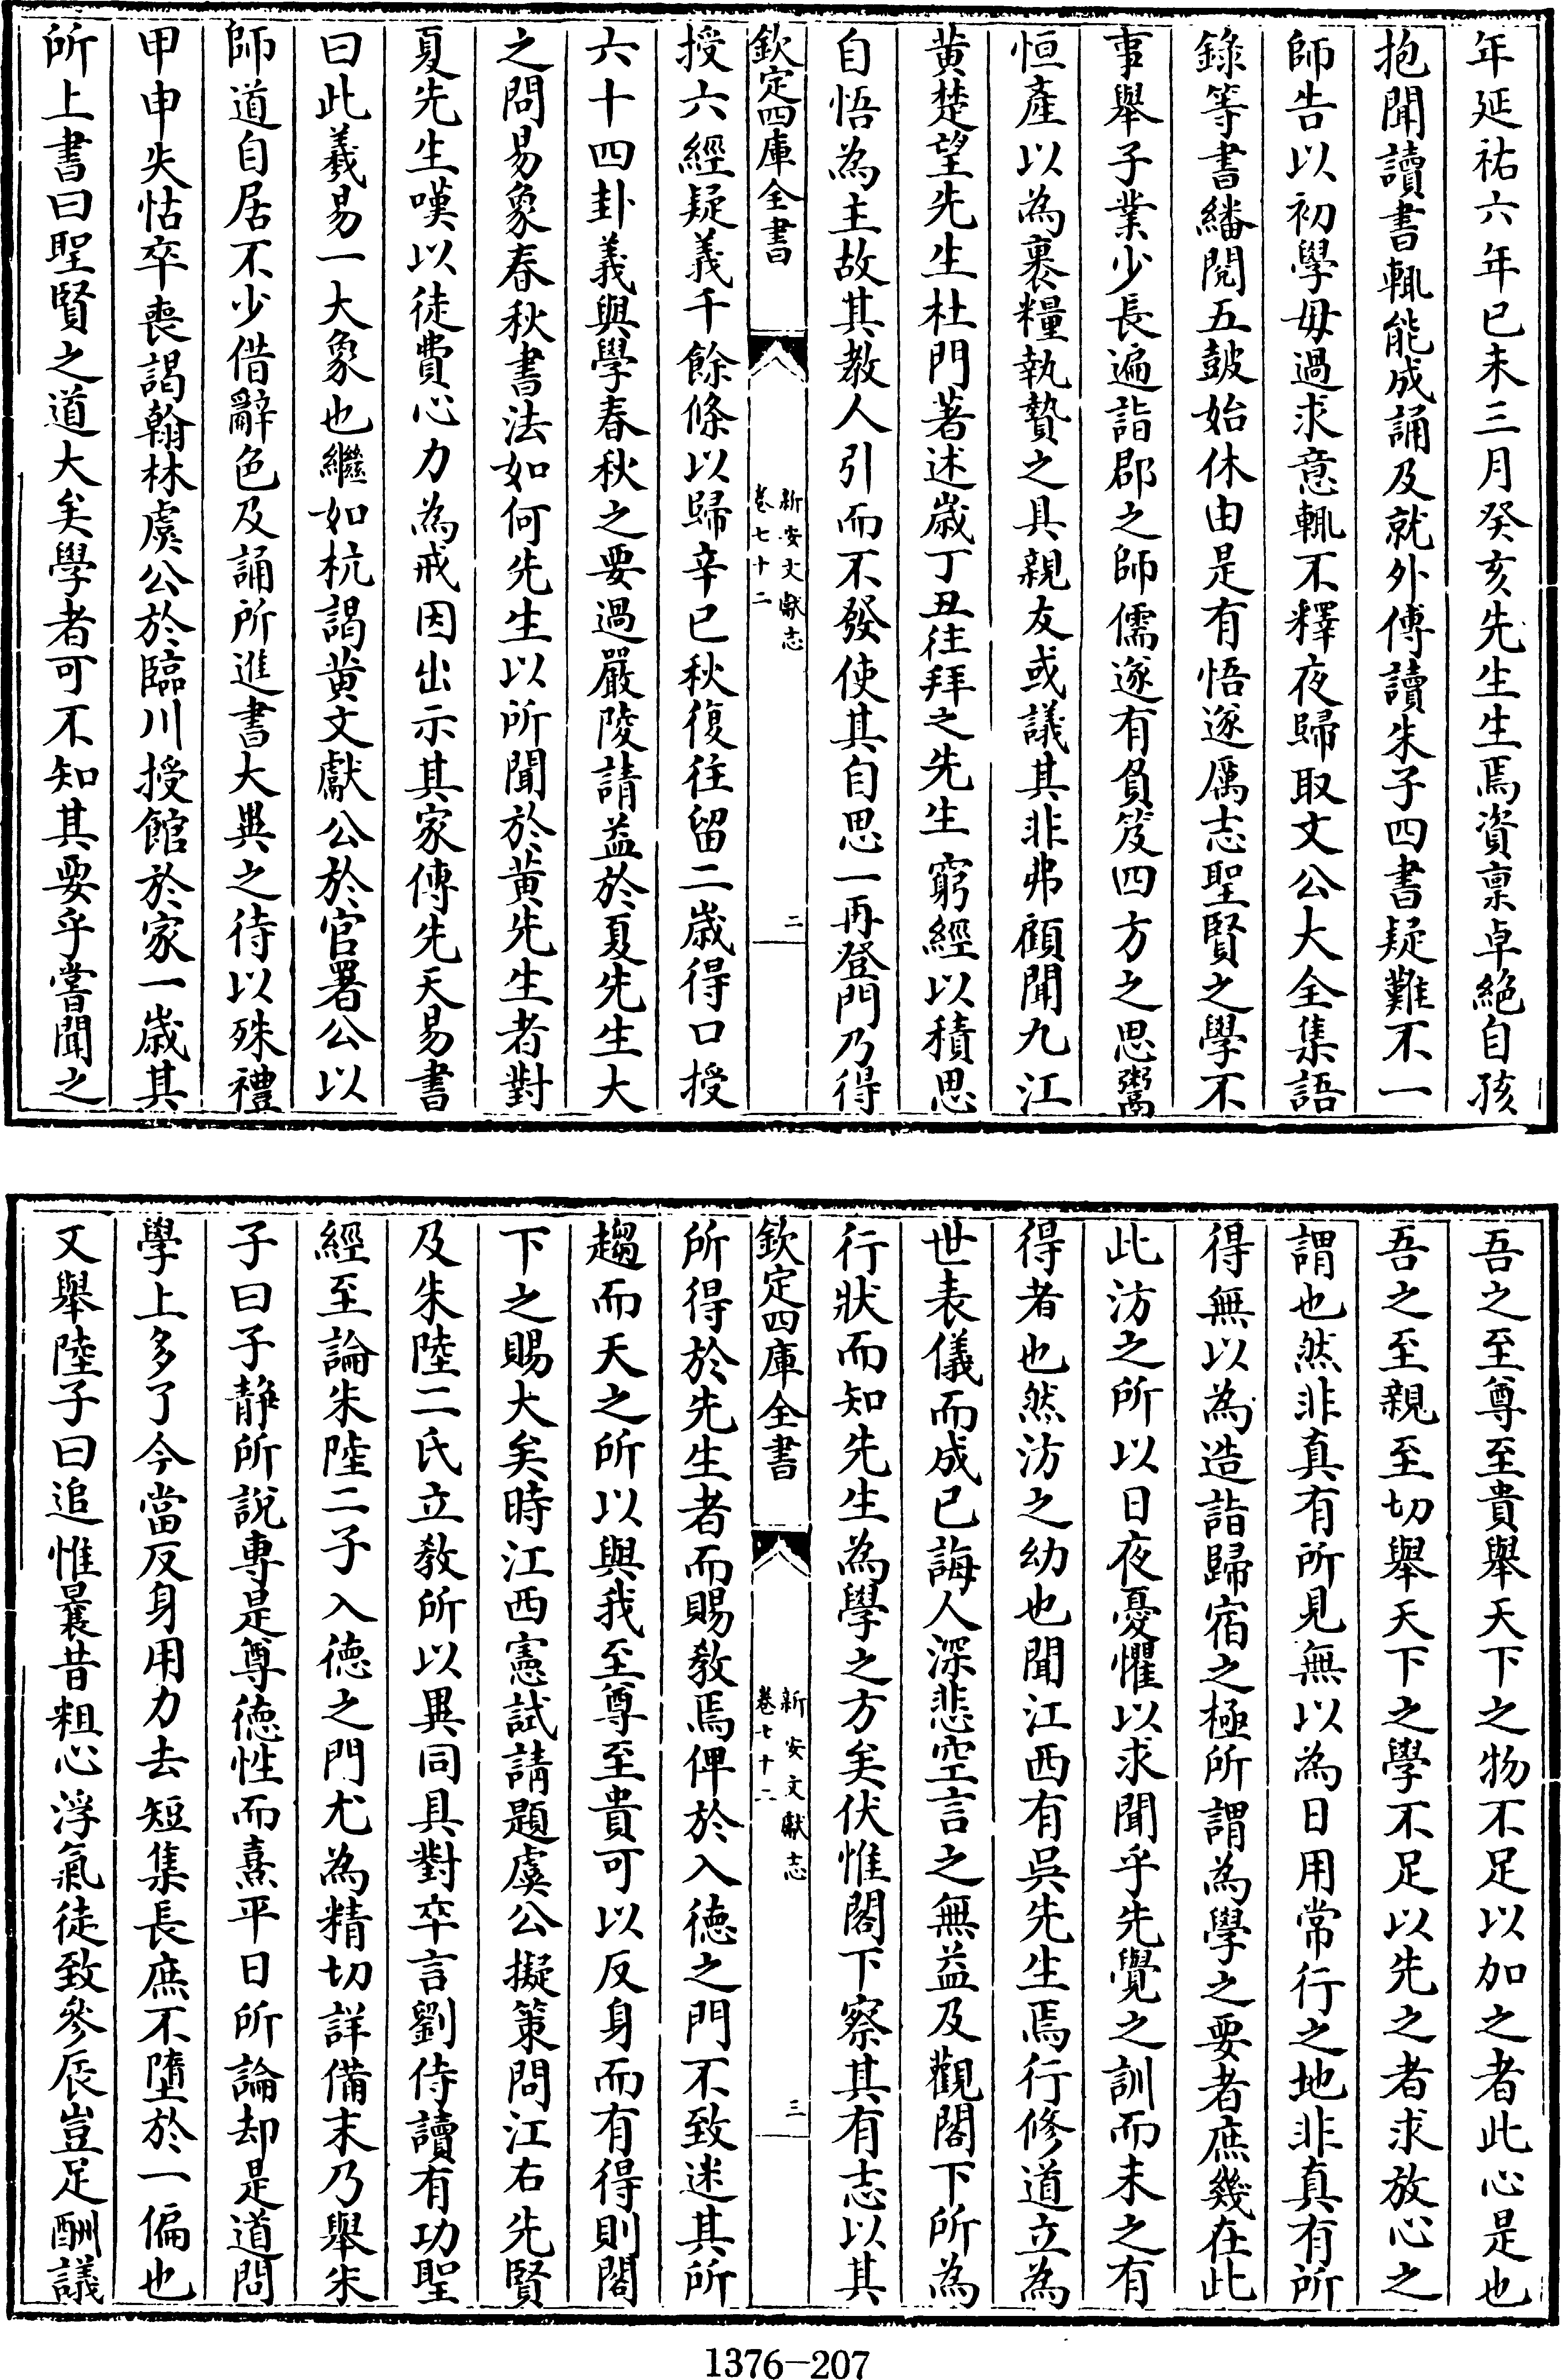 年延祐六年已未三月癸亥先生生焉資稟卓絶自孩
抱聞讀書輒能成誦及就外傅讀朱子四書疑難不一
師告以初學毋過求意輒不釋夜歸取文公大全集語
錄等書繙閱五鼓始休由是有悟遂厲志聖賢之學不
事舉子業少長遍詣郡之師儒遂有負笈四方之思鬻
恒產以為裹糧執贄之具親友或議其非弗顧聞九江
黄楚望先生杜門著述歲丁丑往拜之先生窮經以積思
自悟為主故其教人引而不發使其自思一再登門乃得
欽定四庫全書
新安文獻志
卷七十二
二
授六經疑義千餘條以歸辛已秋復往留二歲得口授
六十四卦義與學春秋之要過嚴陵請益於夏先生大
之問易象春秋書法如何先生以所聞於黄先生者對
夏先生嘆以徒費心力為戒因出示其家傳先天易書
曰此羲易一大象也繼如杭謁黄文獻公於官署公以
師道自居不少借辭色及誦所進書大異之待以殊禮
甲申失怙卒喪謁翰林虞公於臨川授館於家一歲其
所上書曰聖賢之道大矣學者可不知其要乎嘗聞之
吾之至尊至貴舉天下之物不足以加之者此心是也
吾之至親至切舉天下之學不足以先之者求放心之
謂也然非真有所見無以為日用常行之地非真有所
得無以為造詣歸宿之極所謂為學之要者庶幾在此
此汸之所以日夜憂懼以求聞乎先覺之訓而未之有
得者也然汸之幼也聞江西有吳先生焉行修道立為
世表儀而成已誨人深悲空言之無益及觀閣下所為
行狀而知先生為學之方矣伏惟閣下察其有志以其
欽定四庫全書
新安文獻志
卷七十二
三
所得於先生者而賜教焉俾於入德之門不致迷其所
趨而天之所以與我至尊至貴可以反身而有得則閣
下之賜大矣時江西憲試請題虞公擬策問江右先賢
及朱陸二氏立教所以異同具對卒言劉侍讀有功聖
經至論朱陸二子入德之門尤為精切詳備末乃舉朱
子曰子靜所說專是尊德性而熹平日所論却是道問
學上多了今當反身用力去短集長庶不墮於一偏也
又舉陸子曰追惟曩昔粗心浮氣徒致參辰豈足酬議
1376—207